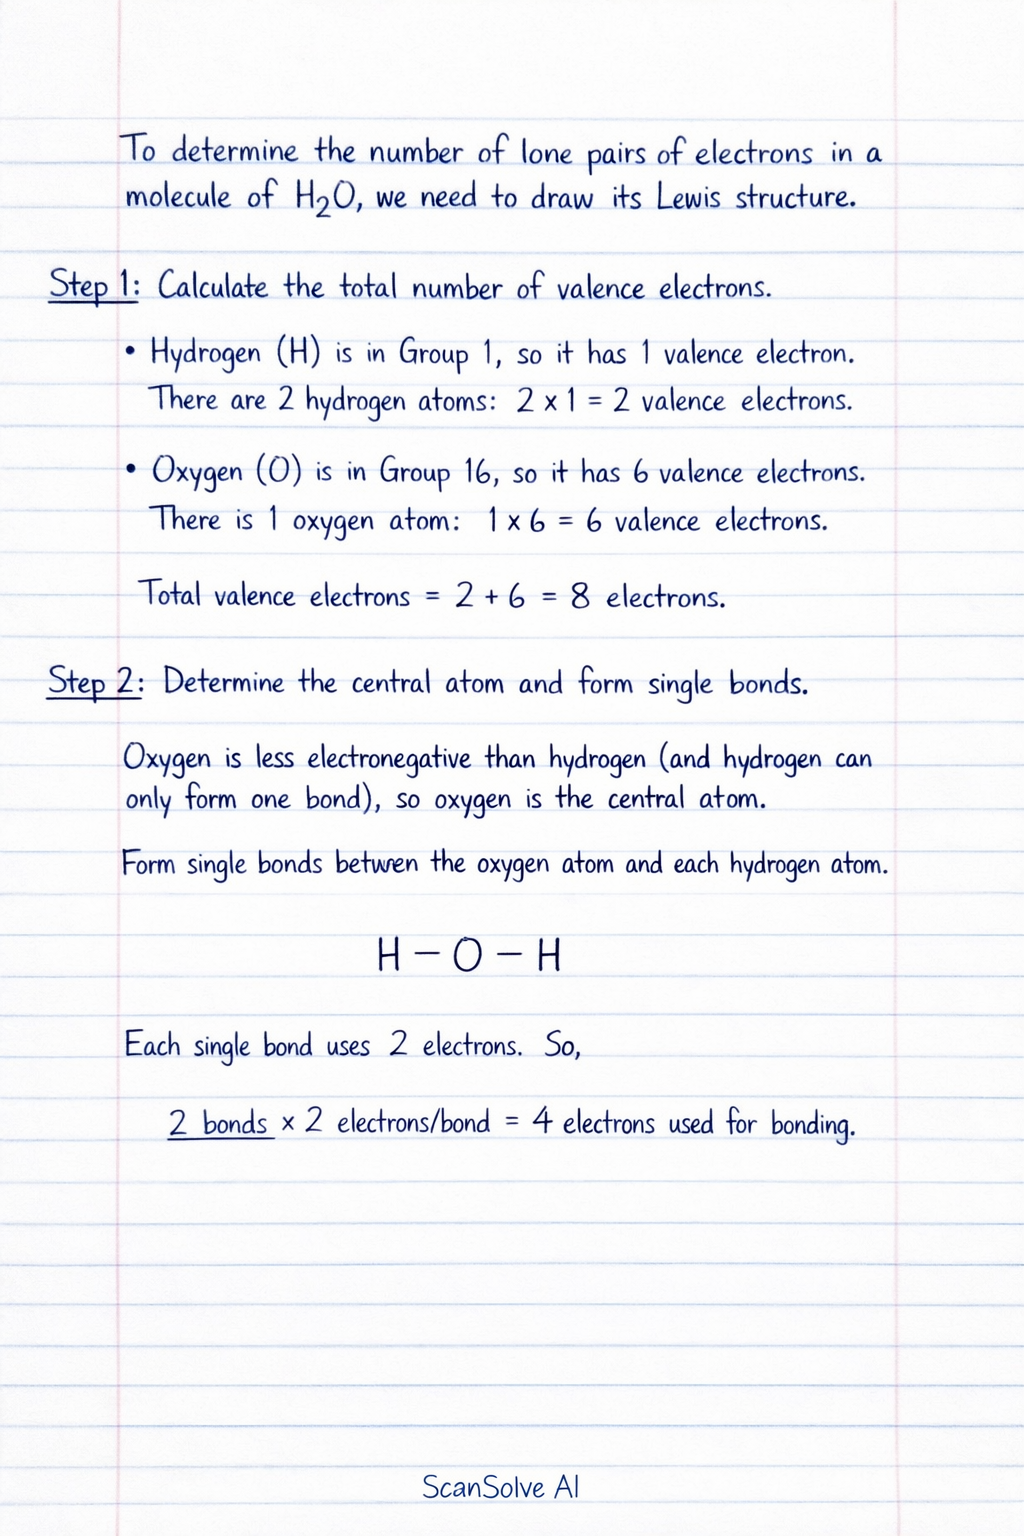 To determine the number of lone pairs of electrons in a
molecule of H₂O, we need to draw its Lewis structure.
Step 1: Calculate the total number of valence electrons.
• Hydrogen (H) is in Group 1, so it has 1 valence electron.
There are 2 hydrogen atoms: 2 x 1 = 2 valence electrons.
• Oxygen (O) is in Group 16, so it has 6 valence electrons.
There is 1 oxygen atom: 1 x 6 = 6 valence electrons.
Total valence electrons = 2 + 6 = 8 electrons.
Step 2: Determine the central atom and form single bonds.
Oxygen is less electronegative than hydrogen (and hydrogen can
only form one bond), so oxygen is the central atom.
Form single bonds between the oxygen atom and each hydrogen atom.
H – O – H
Each single bond uses 2 electrons. So,
2 bonds x 2 electrons/bond = 4 electrons used for bonding.
ScanSolve AI